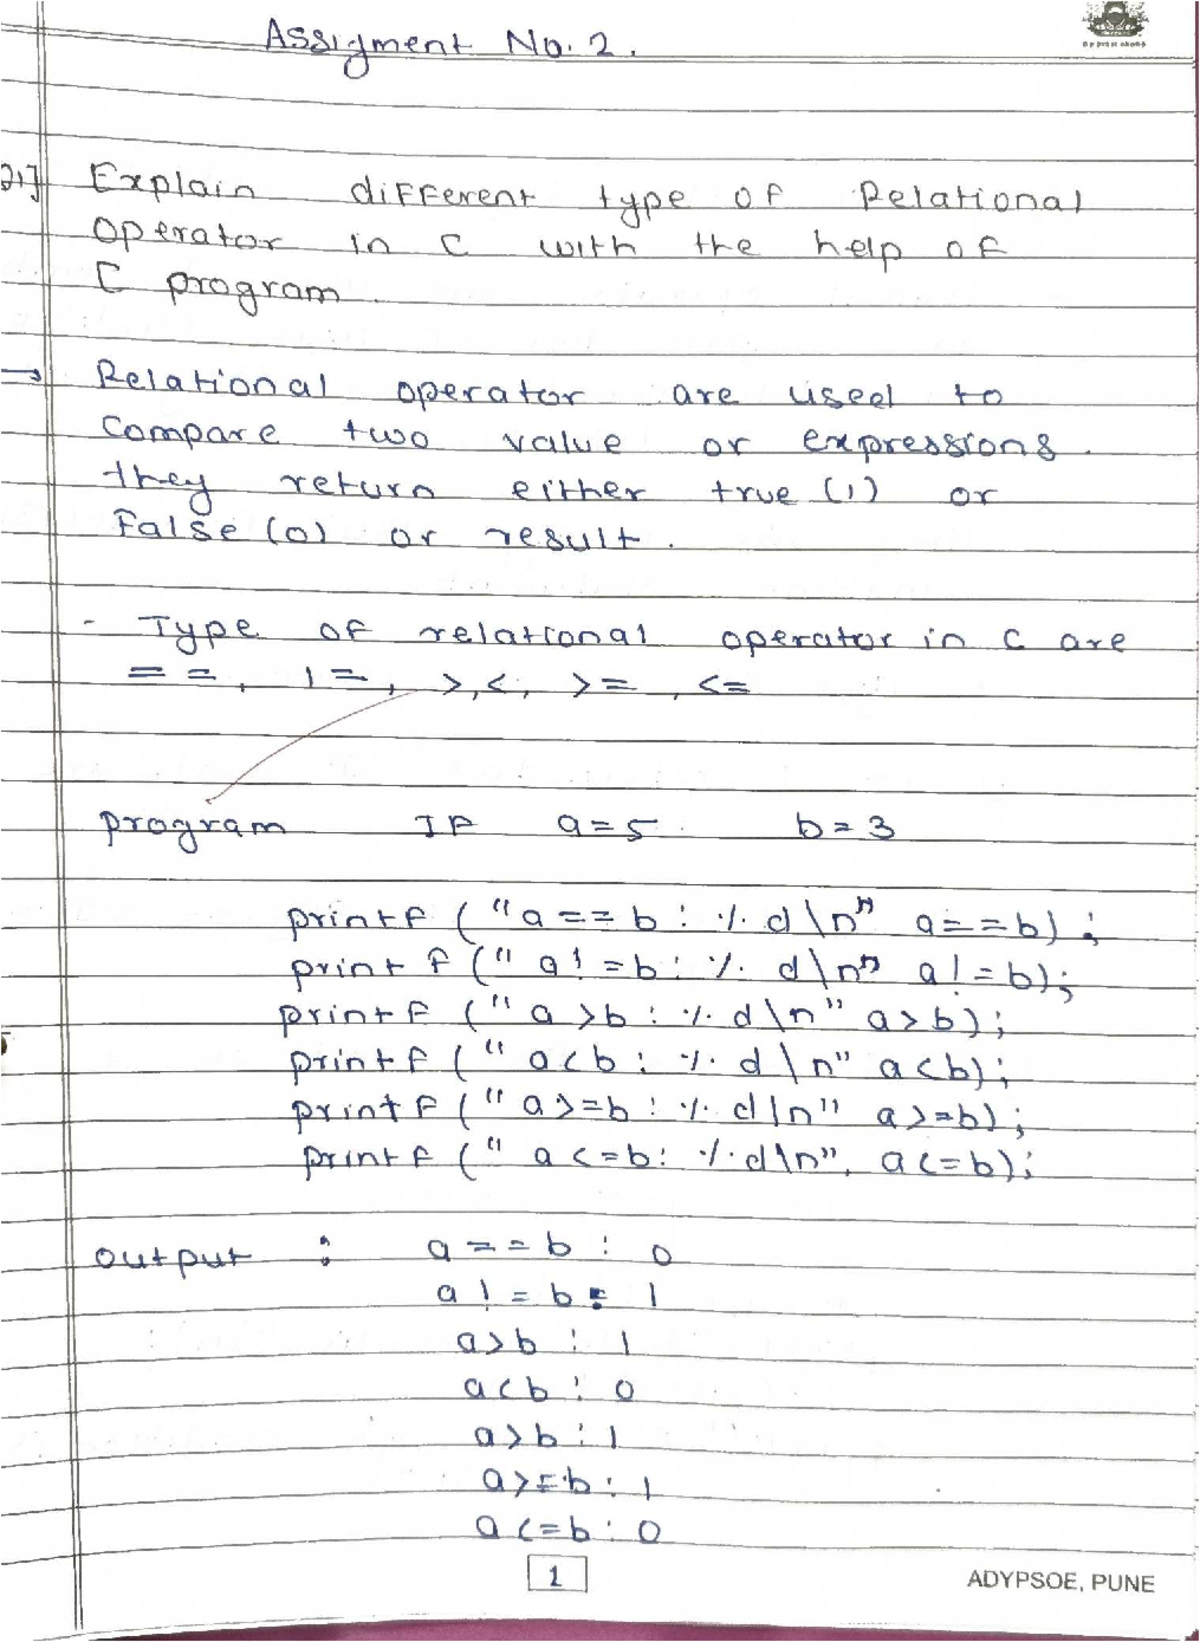 Assigment No. 2.
Q1] Explain different type of Relational
operator in C with the help of
C program.
→ Relational operator are used to
compare two value or expressions.
they return either true (1) or
False (0) or result.
- Type of relational operator in C are
= =, ! =, >, <, > =, < =
program IF a = 5 b = 3
printf ("a == b : % d \n" a == b) ;
printf (" a! = b : % d \n" a! = b);
printf (" a > b : % d \n" a > b);
printf (" a < b : % d \n" a < b);
printf (" a >= b : % d \n" a >= b);
printf (" a <= b : % d \n", a <= b);
output : a == b : 0
a ! = b : 1
a > b : 1
a < b : 0
a > b : 1
a >= b : 1
a <= b : 0
1
ADYPSOE, PUNE